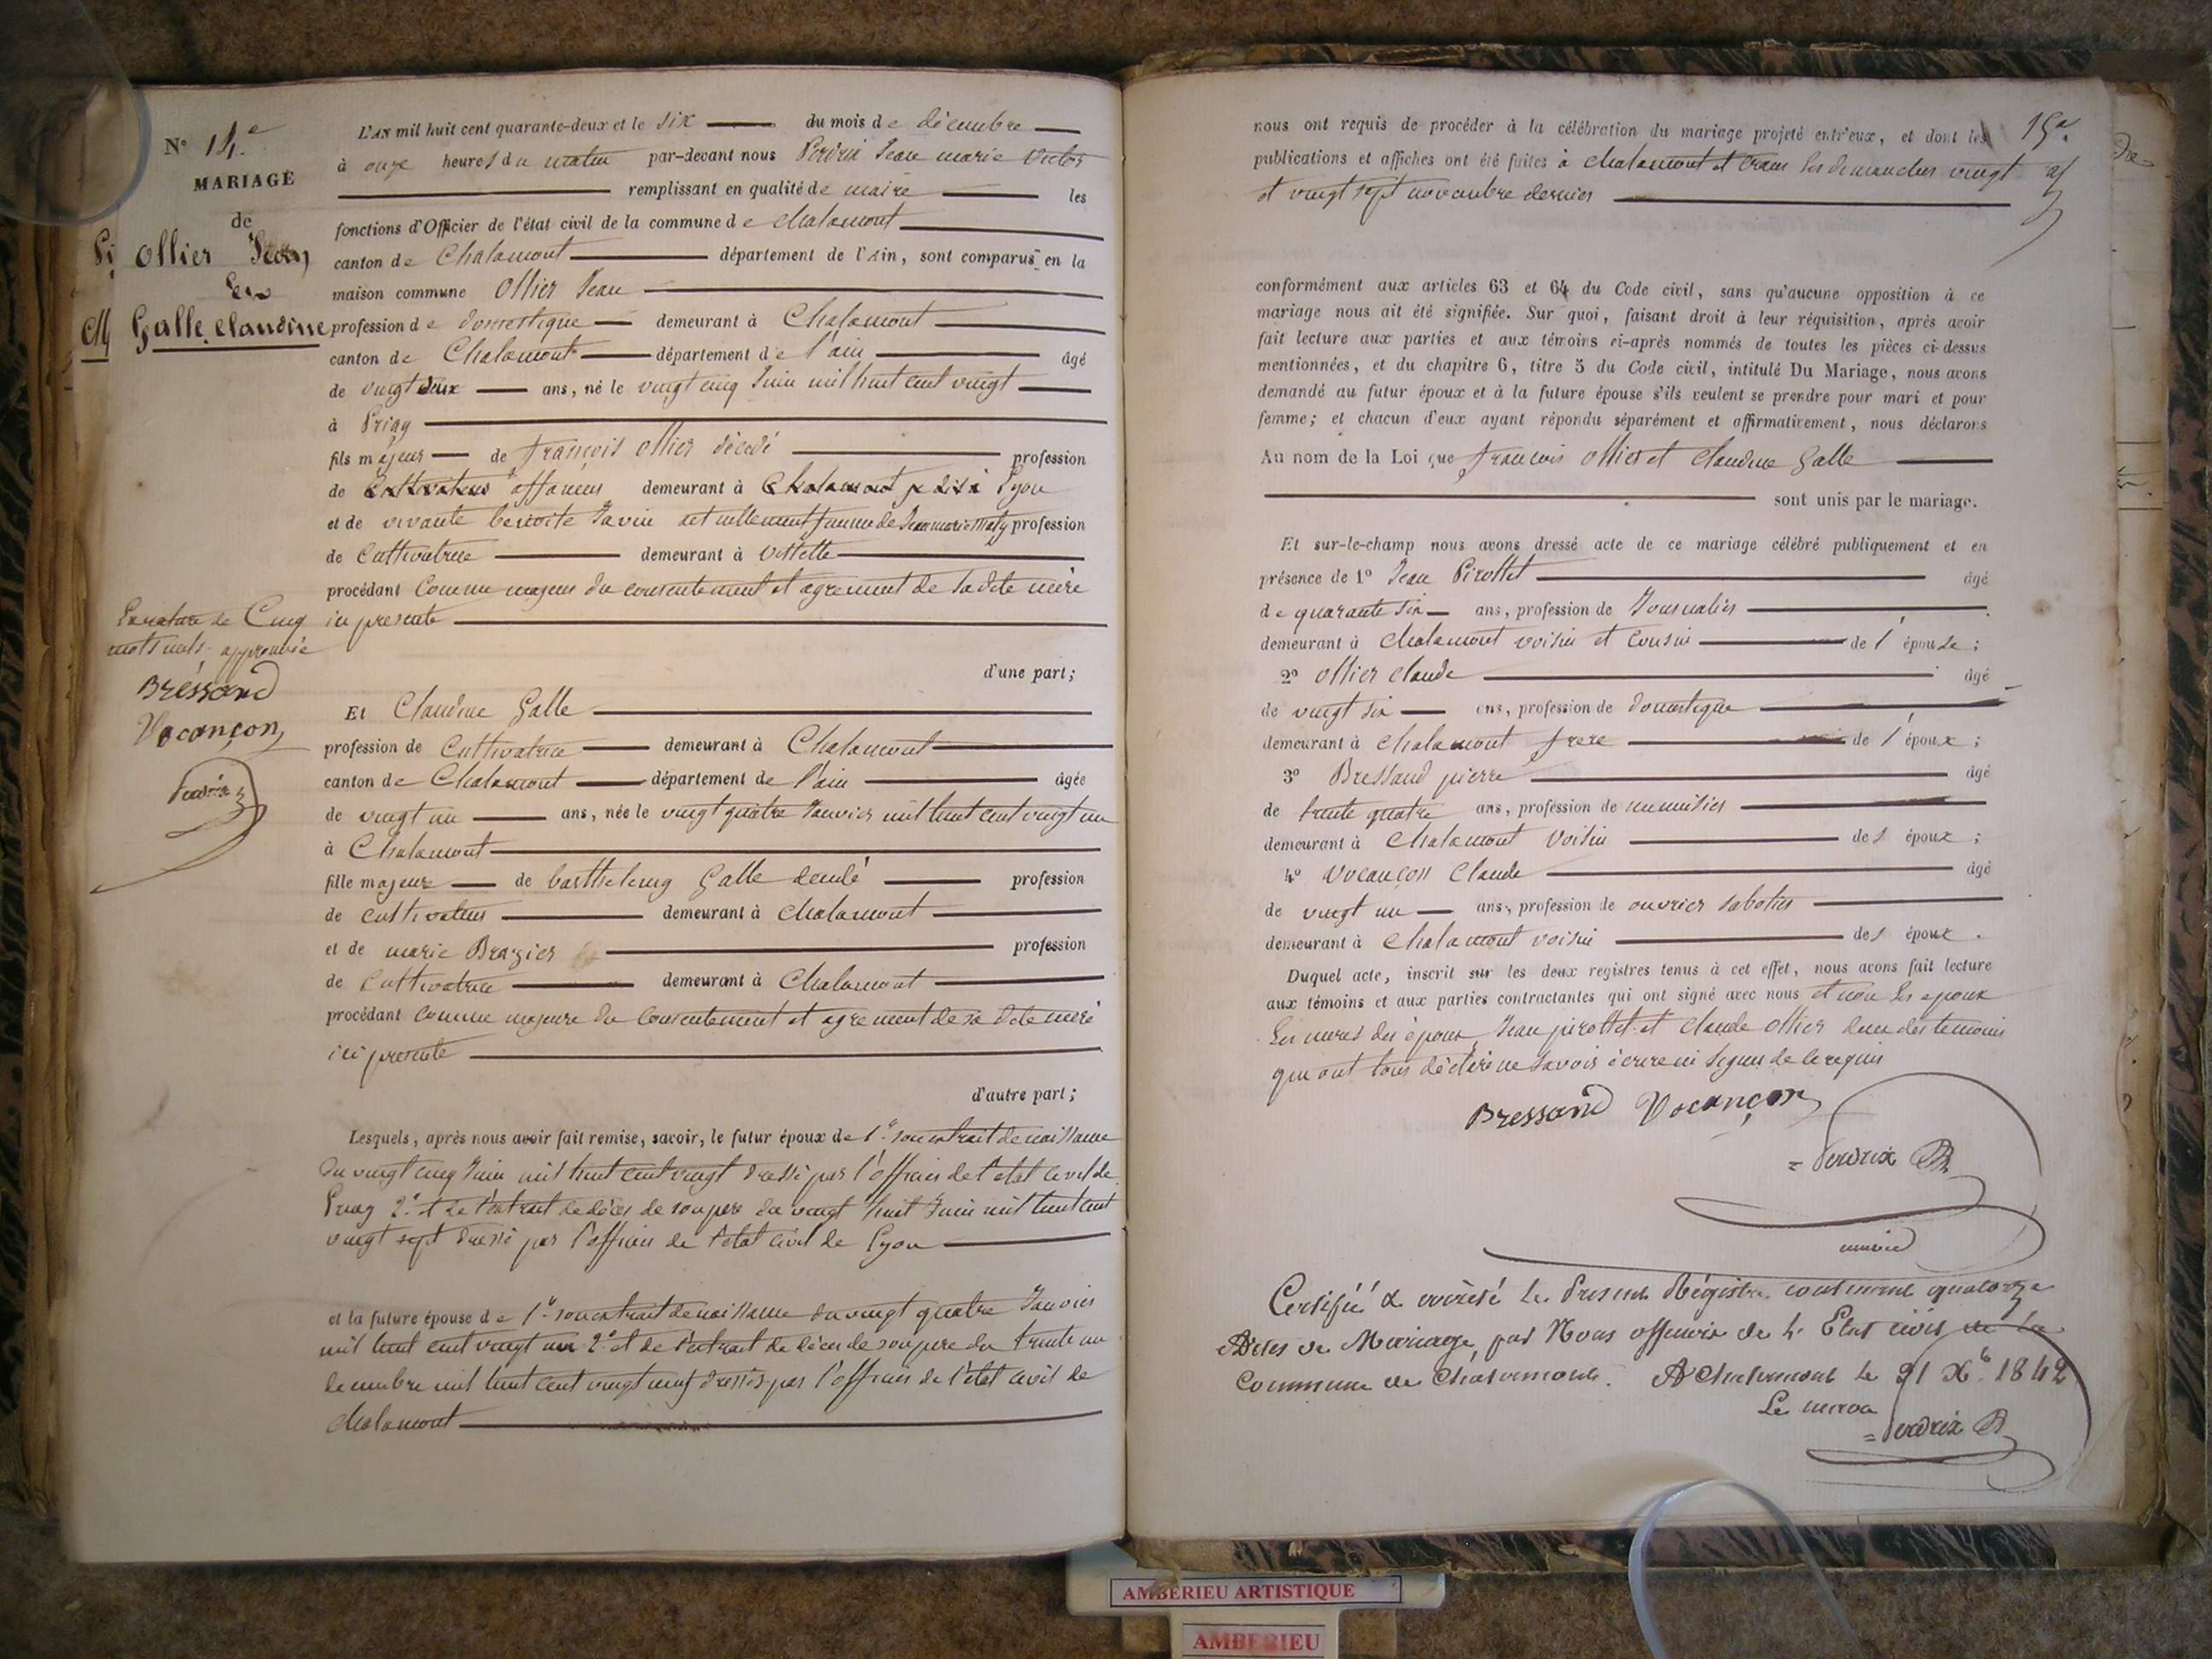 N° 14.e
MARIAGE
de
Ollier Jean
Galle Claudine
L'an mil huit cent quarante-deux et le six du mois de décembre
à onze heures du matin par-devant nous Perdrix Jean marie Victor
remplissant en qualité de maire les
fonctions d'Officier de l'état civil de la commune de Chalamont
canton de Chalamont département de l'Ain, sont comparus en la
maison commune Ollier Jean
profession de domestique demeurant à Chalamont
canton de Chalamont département de l'ain âgé
de vingt deux ans, né le vingt cinq Juin mil huit cent vingt
à Priay
fils majeur de françois Ollier décédé profession
de affaneur demeurant à Lyon
et de vivante benoite actuellement femme de Jean marie profession
de Cultivatrice demeurant à
procédant Comme majeur du consentement et agrement de sadite mère
ici presente
Rature de Cinq
mots nuls approuvée
Bressand
Vocançon
Perdrix
d'une part;
Et Claudine Galle
profession de Cultivatrice demeurant à Chalamont
canton de Chalamont département de l'ain âgée
de vingt un ans, née le vingt quatre Janvier mil huit cent vingt un
à Chalamont
fille majeure de barthelemy Galle décédé profession
de cultivateur demeurant à Chalamont
et de marie Brazier profession
de Cultivatrice demeurant à Chalamont
procédant Comme majeure du Consentement et agrement de sa dite mère
ici presente
d'autre part;
Lesquels, après nous avoir fait remise, savoir, le futur époux de 1° son extrait de naissance
du vingt cinq Juin mil huit cent vingt dressé par l'officier de l'état civil de
Priay 2° et de l'extrait de décès de son pere du vingt huit Juin mil huit cent
vingt sept dressé par l'officier de l'état civil de Lyon
et la future épouse de 1° son extrait de naissance du vingt quatre Janvier
mil huit cent vingt un 2° et de l'extrait de décès de son pere du trente un
decembre mil huit cent vingt neuf dressés par l'officier de l'état civil de
Chalamont
15e.
nous ont requis de procéder à la célébration du mariage projeté entr'eux, et dont les
publications et affiches ont été faites à Chalamont et Crans les dimanches vingt
et vingt sept novembre dernier
conformément aux articles 63 et 64 du Code civil, sans qu'aucune opposition à ce
mariage nous ait été signifiée. Sur quoi, faisant droit à leur réquisition, après avoir
fait lecture aux parties et aux témoins ci-après nommés de toutes les pièces ci-dessus
mentionnées, et du chapitre 6, titre 5 du Code civil, intitulé Du Mariage, nous avons
demandé au futur époux et à la future épouse s'ils veulent se prendre pour mari et pour
femme; et chacun d'eux ayant répondu séparément et affirmativement, nous déclarons
Au nom de la Loi que françois Ollier et Claudine Galle
sont unis par le mariage.
Et sur-le-champ nous avons dressé acte de ce mariage célébré publiquement et en
présence de 1° Jean Pirollet âgé
de quarante six ans, profession de Journalier
demeurant à Chalamont voisin et Cousin de l'épouse;
2° Ollier Claude âgé
de vingt six ans, profession de domestique
demeurant à Chalamont frere de l'époux;
3° Bressand pierre âgé
de trente quatre ans, profession de menuisier
demeurant à Chalamont Voisin des époux;
4° Vocançon Claude âgé
de vingt un ans, profession de ouvrier sabotier
demeurant à Chalamont voisin des époux.
Duquel acte, inscrit sur les deux registres tenus à cet effet, nous avons fait lecture
aux témoins et aux parties contractantes qui ont signé avec nous et non les epoux
Les meres des époux, Jean pirollet et Claude Ollier deux des temoins
qui ont tous déclaré ne savoir écrire ni signer de ce requis
Bressand Vocançon
Perdrix
maire
Certifié & Présent Régistre contenant quatorze
Actes de Mariage par Nous officier de l'Etat civil de la
Commune de Chalamont. A Chalamont le 31 Xbre 1842
Le maire
Perdrix
AMBERIEU ARTISTIQUE
AMBERIEU